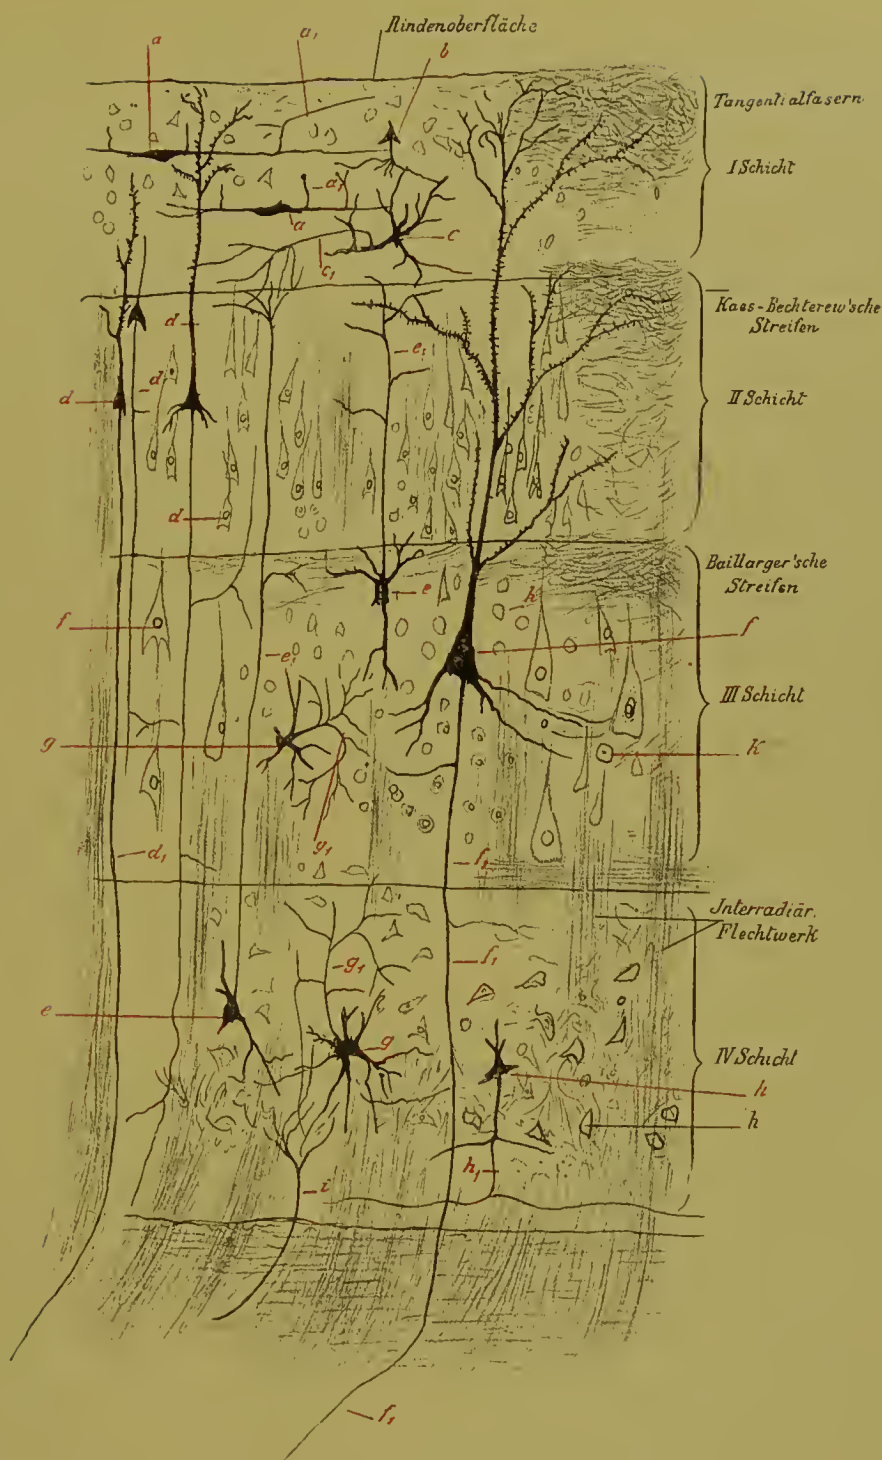 Rindenoberfläche
a
a₁
b
Tangentialfasern
I Schicht
a₁
a
c
c₁
Kaes-Bechterew'sche
Streifen
d
e₁
d₁
d
II Schicht
d
Baillarger'sche
Streifen
e
h
f
f
e₁
III Schicht
g
k
g₁
d₁
f₁
Interradiär.
Flechtwerk
g₁
f₁
e
g
IV Schicht
h
h
h₁
i
f₁